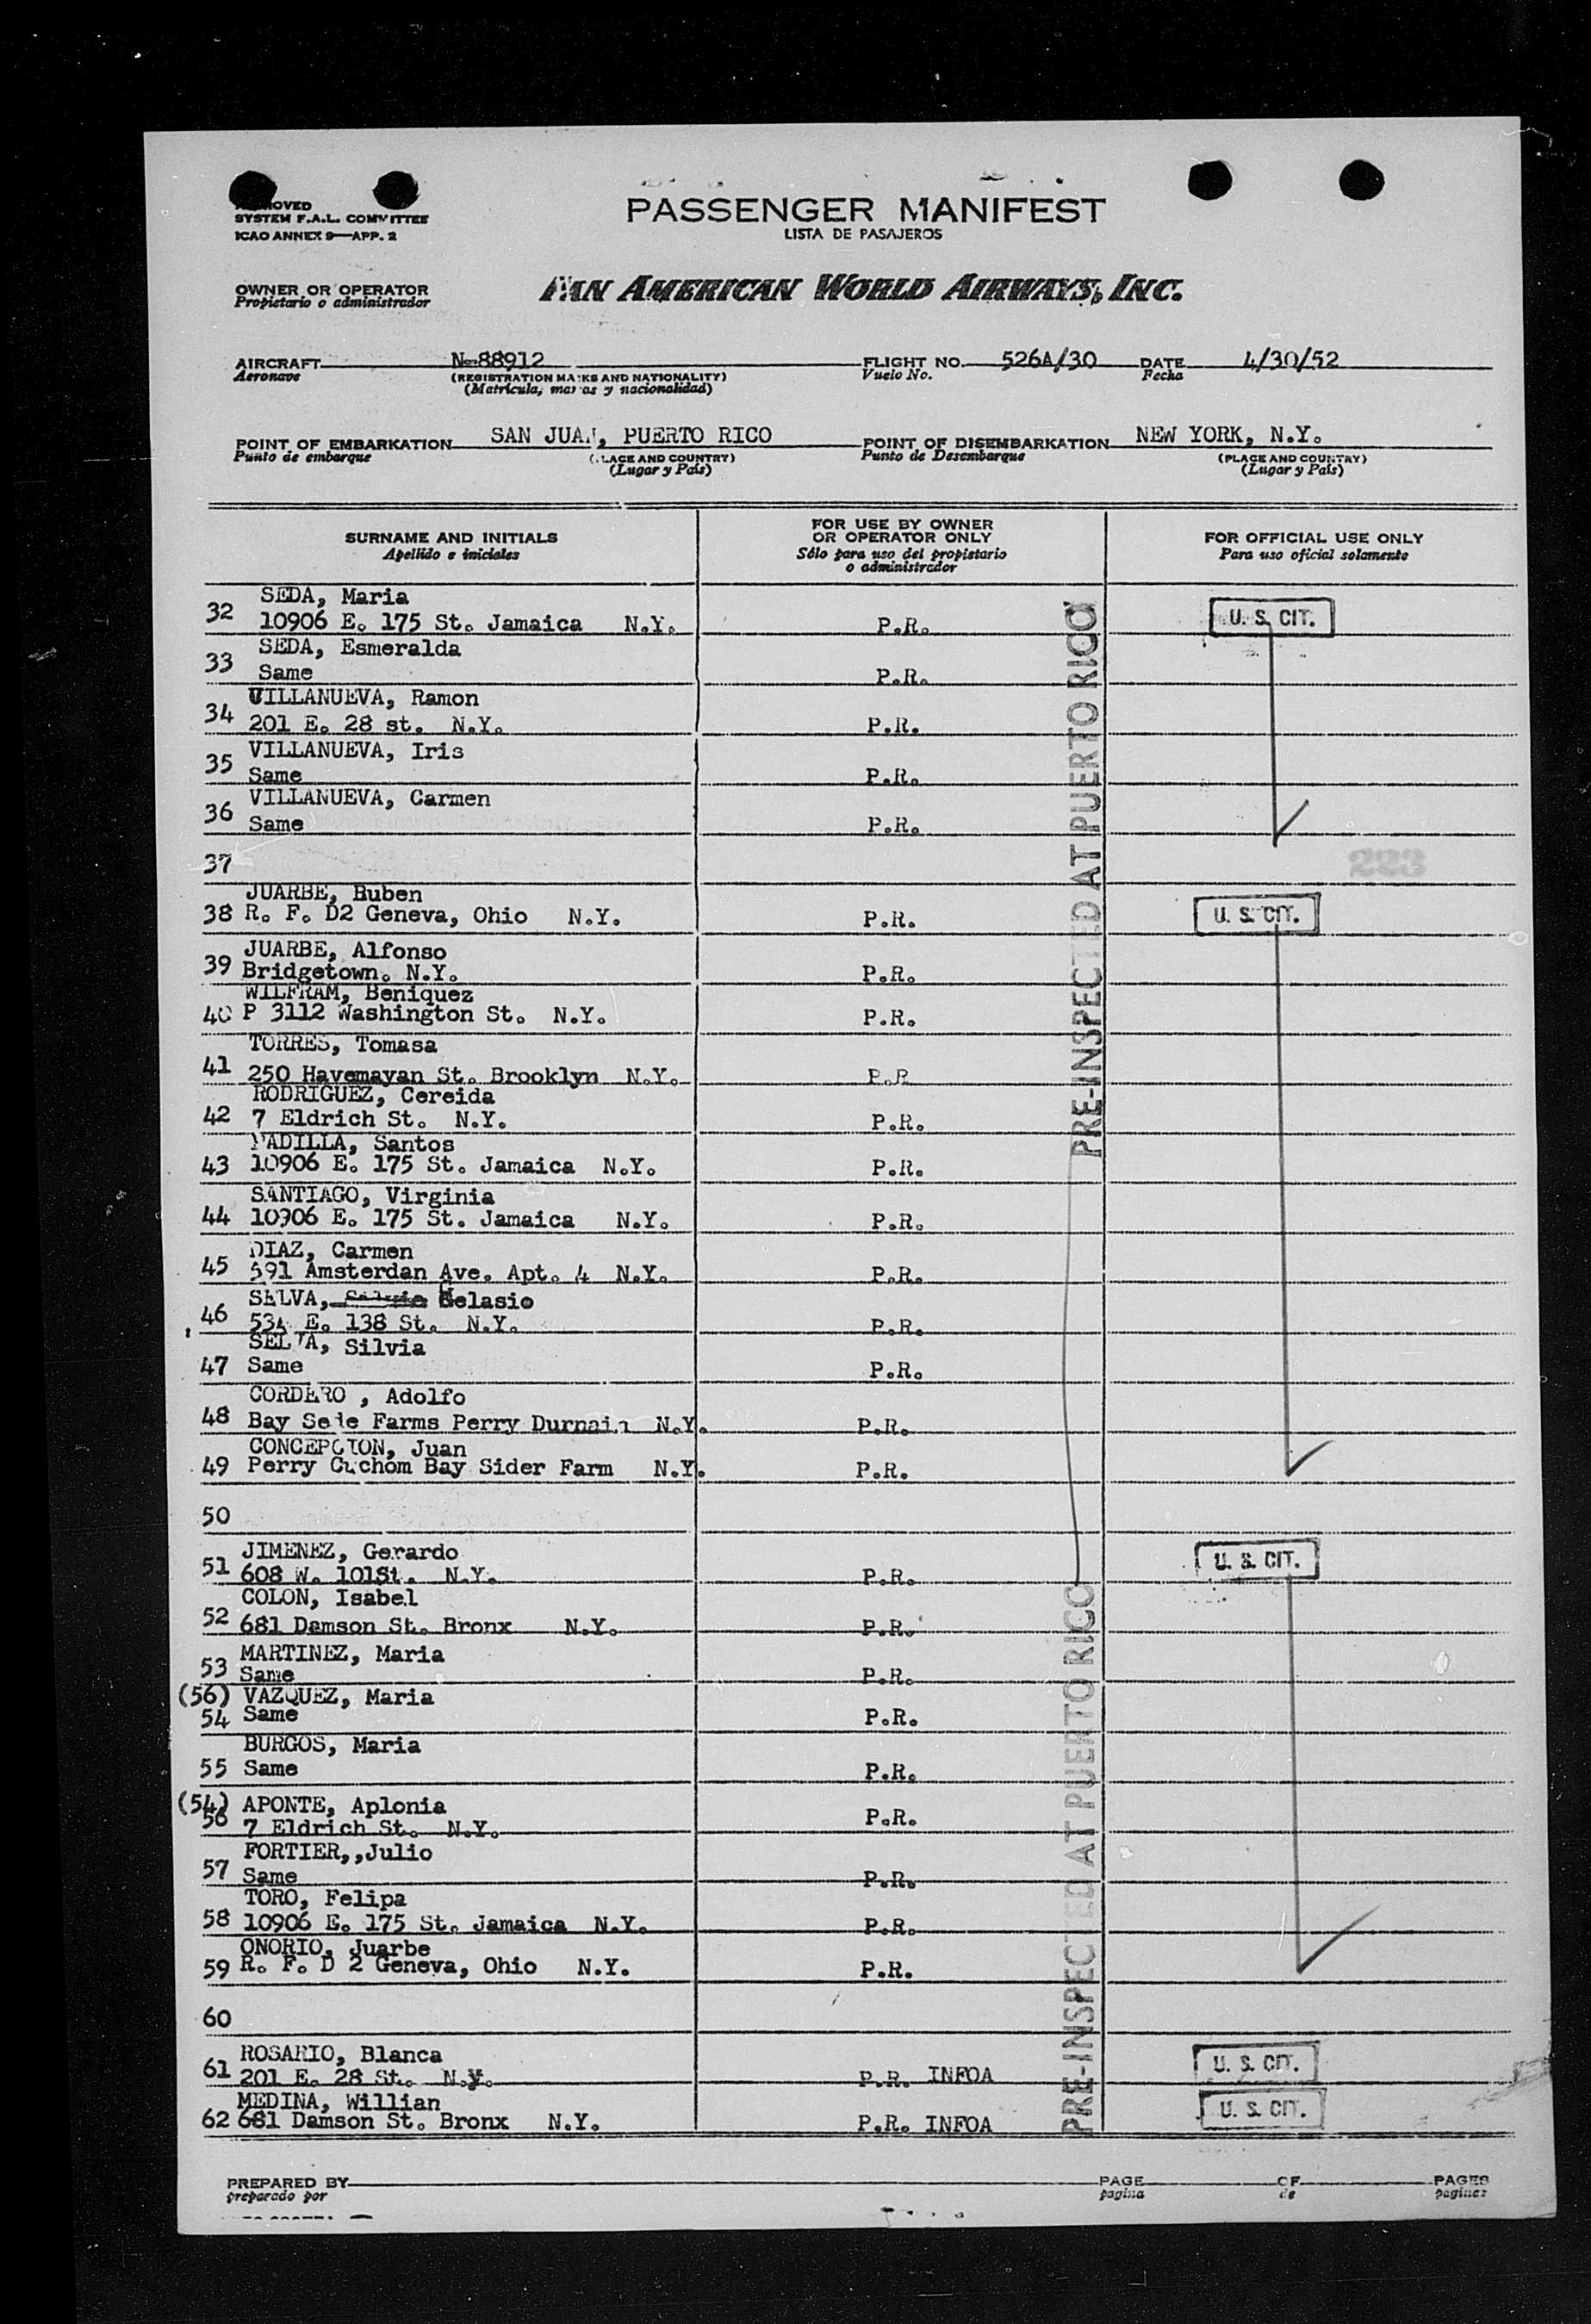 SYSTEM F.A.L. COMMITTEE
ICAO ANNEX 9—APP. 2
PASSENGER MANIFEST
LISTA DE PASAJEROS
OWNER OR OPERATOR
Propietario o administrador
PAN AMERICAN WORLD AIRWAYS, INC.
AIRCRAFT N-88912 FLIGHT NO. 526A/30 DATE 4/30/52
Aeronave (REGISTRATION MARKS AND NATIONALITY) Vuelo No. Fecha
(Matrícula, marcas y nacionalidad)
POINT OF EMBARKATION SAN JUAN, PUERTO RICO POINT OF DISEMBARKATION NEW YORK, N.Y.
Punto de embarque (PLACE AND COUNTRY) Punto de Desembarque (PLACE AND COUNTRY)
(Lugar y País) (Lugar y País)
SURNAME AND INITIALS
Apellido e iniciales
FOR USE BY OWNER
OR OPERATOR ONLY
Sólo para uso del propietario
o administrador
FOR OFFICIAL USE ONLY
Para uso oficial solamente
SEDA, Maria
32 10906 E. 175 St. Jamaica N.Y. P.R. U. S. CIT.
SEDA, Esmeralda
33 Same P.R.
VILLANUEVA, Ramon
34 201 E. 28 st. N.Y. P.R.
VILLANUEVA, Iris
35 Same P.R.
VILLANUEVA, Carmen
36 Same P.R.
37
223
JUARBE, Ruben
38 R. F. D2 Geneva, Ohio N.Y. P.R. U. S. CIT.
JUARBE, Alfonso
39 Bridgetown. N.Y. P.R.
WILFRAM, Beniquez
40 P 3112 Washington St. N.Y. P.R.
TORRES, Tomasa
41 250 Havemayan St. Brooklyn N.Y. P.R
RODRIGUEZ, Cereida
42 7 Eldrich St. N.Y. P.R.
PADILLA, Santos
43 10906 E. 175 St. Jamaica N.Y. P.R.
SANTIAGO, Virginia
44 10906 E. 175 St. Jamaica N.Y. P.R.
DIAZ, Carmen
45 591 Amsterdan Ave. Apt. 4 N.Y. P.R.
SELVA, Gelasio
46 534 E. 138 St. N.Y. P.R.
SELVA, Silvia
47 Same P.R.
CORDERO , Adolfo
48 Bay Farms Perry N.Y. P.R.
CONCEPCION, Juan
49 Perry Bay Sider Farm N.Y. P.R.
50
JIMENEZ, Gerardo
51 608 W. 101St. N.Y. P.R. U. S. CIT.
COLON, Isabel
52 681 Damson St. Bronx N.Y. P.R.
MARTINEZ, Maria
53 Same P.R.
(56) VAZQUEZ, Maria
54 Same P.R.
BURGOS, Maria
55 Same P.R.
(54) APONTE, Aplonia P.R.
56 7 Eldrich St. N.Y.
FORTIER,,Julio
57 Same P.R.
TORO, Felipa
58 10906 E. 175 St. Jamaica N.Y. P.R.
ONORIO, Juarbe
59 R. F. D 2 Geneva, Ohio N.Y. P.R.
60
ROSARIO, Blanca
61 201 E. 28 St. N.Y. P.R. INFOA U. S. CIT.
MEDINA, Willian
62 681 Damson St. Bronx N.Y. P.R. INFOA U. S. CIT.
PRE-INSPECTED AT PUERTO RICO
PRE-INSPECTED AT PUERTO RICO
PREPARED BY PAGE OF PAGES
preparado por pagina de paginas